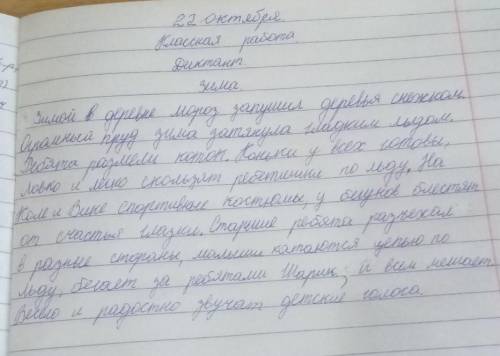 22 октября.
Классная работа.
Диктант.
Зима.
Зимой в деревне мороз запушил деревья снежком.
Огромный пруд зима затянула гладким льдом.
Ребята размели каток. Коньки у всех готовы,
ловко и легко скользят ребятишки по льду. На
Коле и Вике спортивные костюмы, у бегунов блестят
от счастья глазки. Старшие ребята разъехали
в разные стороны, малыши катаются цепью по
льду, бегает за ребятами Шарик, и всем мешает.
Весело и радостно звучат детские голоса.